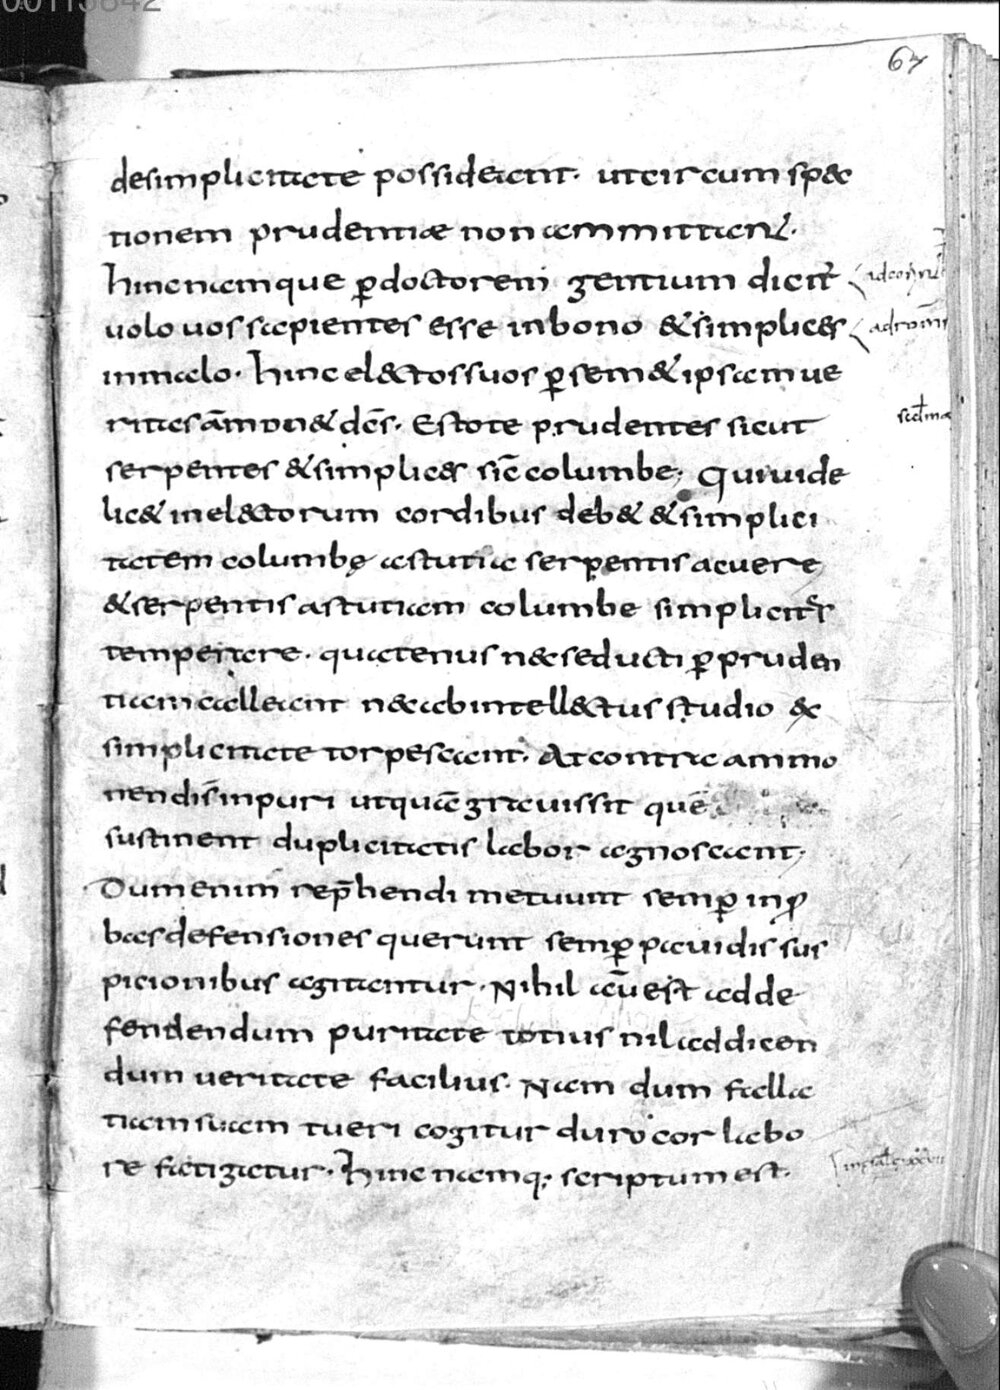 00115842
67
desimplicitate possideant. ut circum spec
tionem prudentiae non ammittant.
hincnamque ꝑdoctorem gentium dicit̄
uolo uos sapientes esse inbono &simplices
inmalo. hinc el&tossuos ꝑsem&ipsam ue
ritas ām on& dc̄s. Estote prudentes sicut
serpentes &simplices sic̄ columbe; Quiuide
lic& inel&torum cordibus deb& &simplici
tatem columbę astutia serpentis acuere
&serpentis astutiam columbe simplicit̄s
temperare. quatenus necseducti ꝑpruden
tiam calleant necabintell&tus studio ex
simplicitate torpescant. At contra ammo
nendis̄ inpuri utquā grauissit quē
sustinent duplicitatis labor agnoscant;
Dumenim rep̄hendi metuunt semꝑ inꝓ
bas defensiones querunt semꝑ pauidis sus
picionibus agitantur. Nihil aūest adde
fendendum puritate totius nil addicen
dum ueritate facilius. Nam dum falla
tiam suam tueri cogitur duro cor labo
re fatigatur. hinc namq; scriptum est.